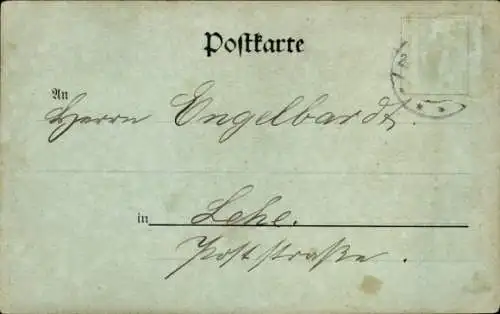 Postkarte
An
Herrn Engelbardt.
in Lehe.
Poststraße.